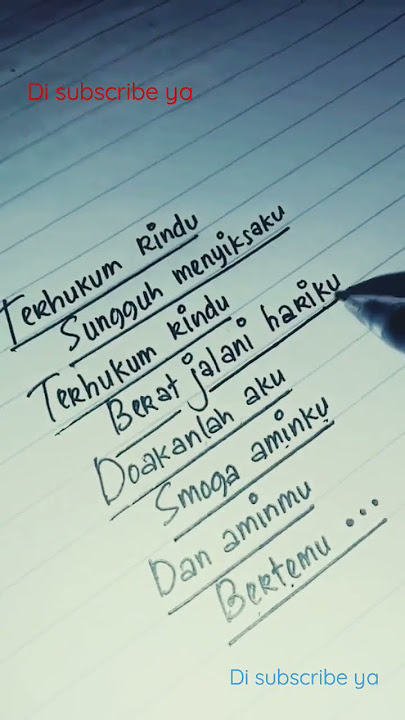 Di subscribe ya
Terhukum Rindu
Sungguh menyiksaku
Terhukum Rindu
Berat jalani hariku
Doakanlah aku
Smoga aminku
Dan aminmu
Bertemu ...
Di subscribe ya